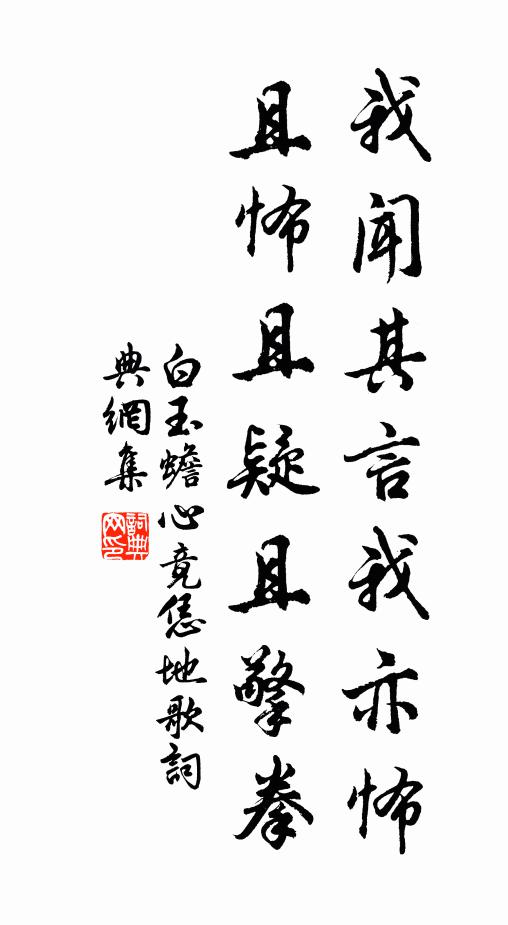 我聞其言我亦怖
且怖且疑且擎拳
白玉蟾心竟恁地歌詞
典網集
詞典
网印